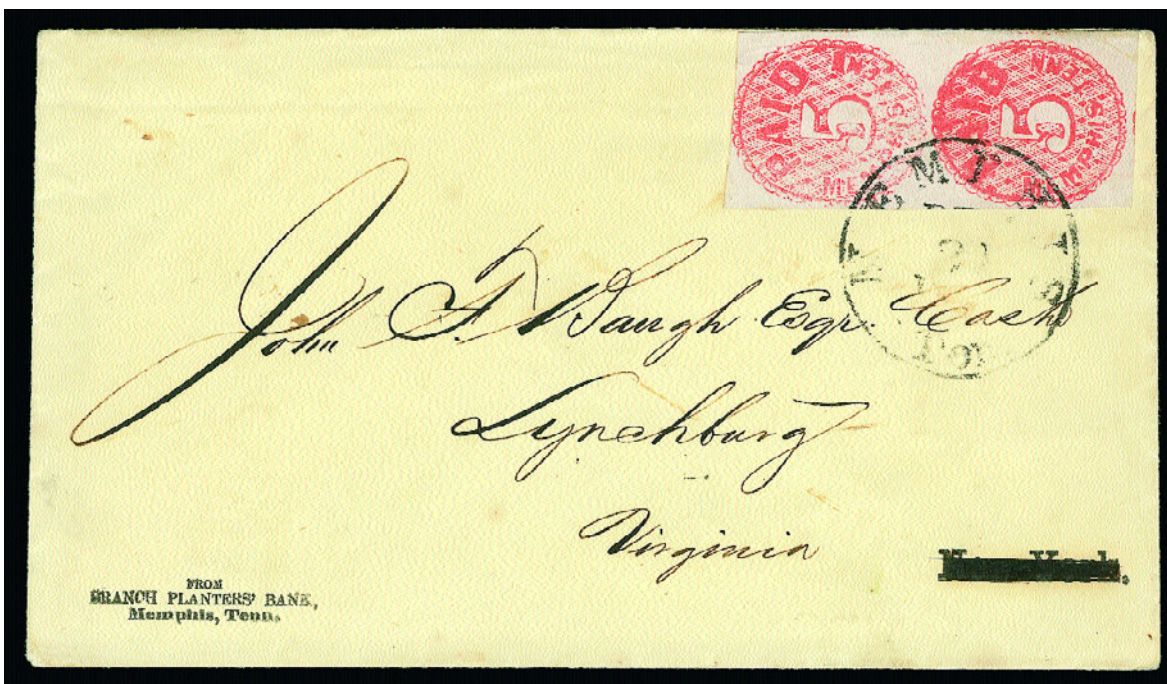 PAID 5 MEMPHIS TENN
PAID 5 MEMPHIS TENN
MEMPHIS
Ten
John F. Waugh Esqr. Cash
Lynchburg
Virginia
New York.
FROM
BRANCH PLANTERS' BANK,
Memphis, Tenn.